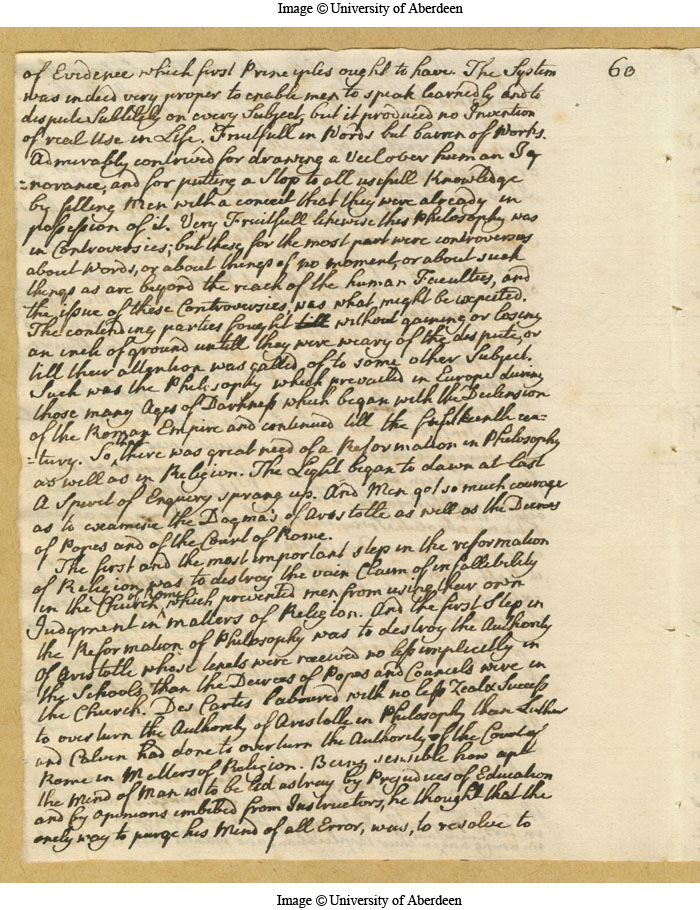 Image © University of Aberdeen
60
of Evidence which first Principles ought to have. The System
was indeed very proper to enable men to speak learnedly and to
dispute Subtilely on every Subject, but it produced no Invention
of real Use in Life. Fruitfull in Words but barren of Works.
Admirably contrived for drawing a Veil over human Ig
=norance, and for putting a Stop to all usefull Knowledge
by filling Men with a conceit that they were already in
possession of it. Very Fruitfull likewise this Philosophy was
in Controversies; but these for the most part were controversies
about Words, or about things of no moment, or about such
things as are beyond the reach of the human Faculties, and
the issue of these Controversies was what might be expected.
The contending parties fought till without gaining or losing
an inch of ground untill they were weary of the dispute, or
till their attention was called of to some other Subject.
Such was the Philosophy which prevailed in Europe during
those many Ages of Darkness which began with the Declension
of the Roman Empire and continued till the fifteenth cen-
-tury. So that there was great need of a Reformation in Philosophy
as well as in Religion. The Light began to dawn at last
A Spirit of Enquiry sprang up. And Men got so much courage
as to examine the Dogma's of Aristotle as well as the Decrees
of Popes and of the Court of Rome.
The first and the most important step in the reformation
of Religion was to destroy the vain Claim of infallibility
in the Church of Rome, which prevented men from using their own
Judgment in matters of Religion. And the first Step in
the Reformation of Philosophy was to destroy the Authority
of Aristotle whose tenets were received no less implicitly in
the Schools than the Decrees of Popes and Councels were in
the Church. Des Cartes laboured with no less Zeal & Success
to overturn the Authority of Aristotle in Philosophy than Luther
and Calvin had done to overturn the Authority of the Court of
Rome in Matters of Religion. Being sensible how apt
the Mind of Man is to be led astray by Prejudices of Education
and by opinions imbibed from Instructors, he thought that the
onely way to purge his Mind of all Error, was, to resolve to
Image © University of Aberdeen